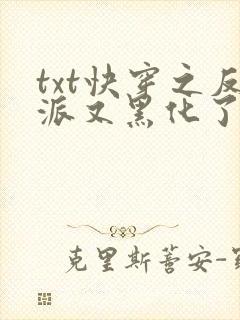 txt快穿之反
派又黑化了
克里斯蒂安-